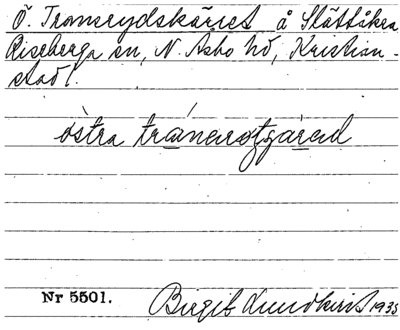 Ö. Tranerydskärret å Slättåkra
Riseberga sn, N. Åsbo hd, Kristian-
stad l.
östra
Nr 5501.
Birgit Lundkvist 1935